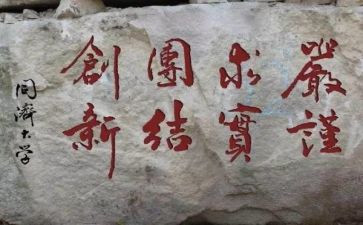 嚴謹
求實
團結
創新
同濟大学